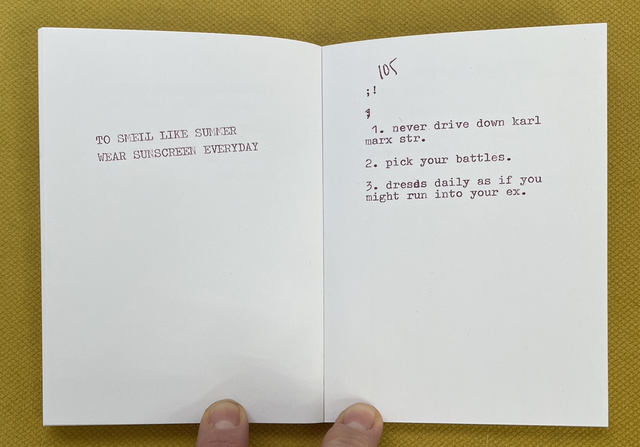 TO SMELL LIKE SUMMER
WEAR SUNSCREEN EVERYDAY
105
;!
;
1. never drive down karl
marx str.
2. pick your battles.
3. dresds daily as if you
might run into your ex.